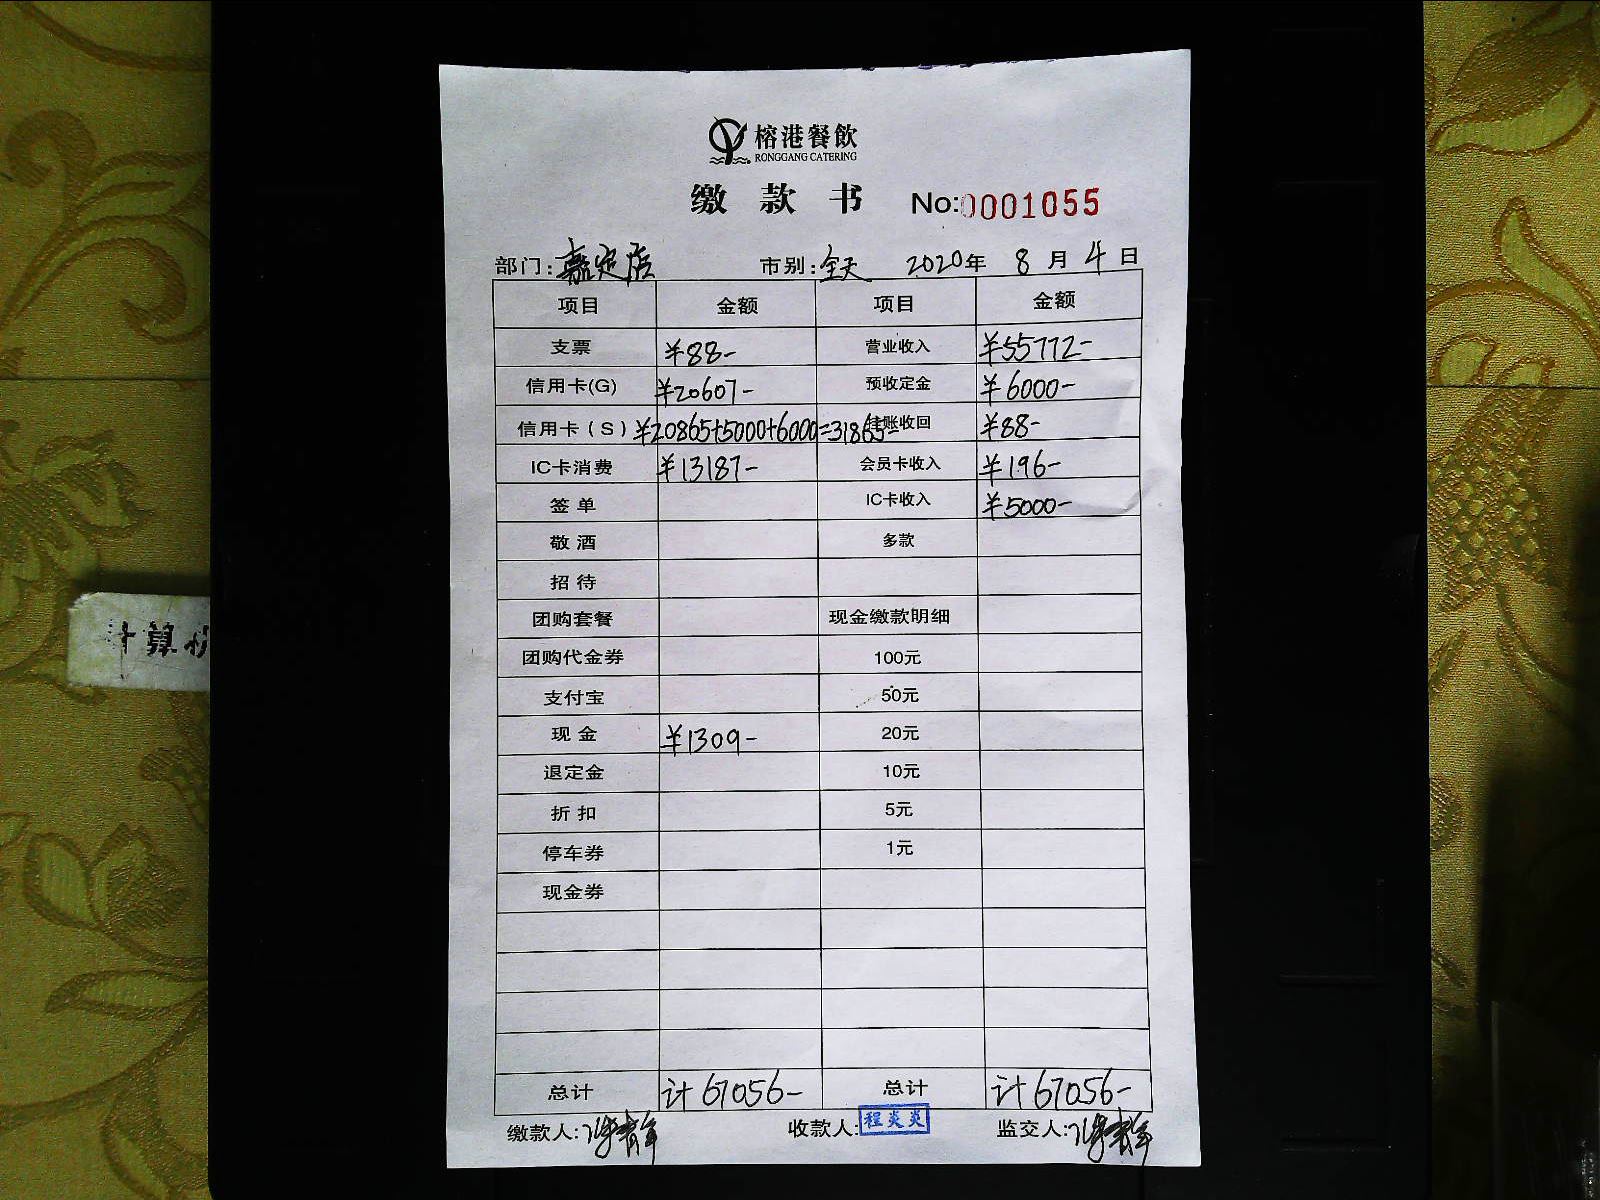 榕港餐飲
RONGGANG CATERING
缴 款 书 No:0001055
部门:嘉定店 市别:全天 2020年 8 月 4 日
项目 金额 项目 金额
支票 ¥88- 营业收入 ¥55772-
信用卡(G) ¥20607- 预收定金 ¥6000-
信用卡(S) ¥20865+5000+6000=31865- 挂账收回 ¥88-
IC卡消费 ¥13187- 会员卡收入 ¥196-
签 单 IC卡收入 ¥5000-
敬 酒 多款
招 待
团购套餐 现金缴款明细
团购代金券 100元
支付宝 50元
现 金 ¥1309- 20元
退定金 10元
折 扣 5元
停车券 1元
现金券
总计 计67056- 总计 计67056-
缴款人: 收款人:程炎炎 监交人:
计算